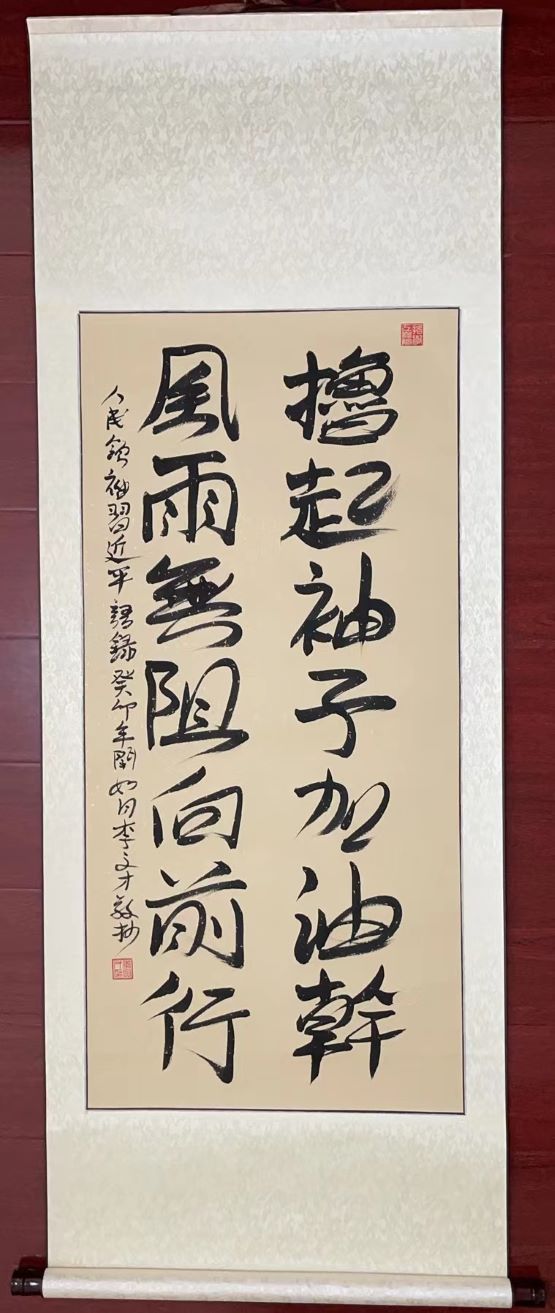 擼起袖子加油幹
風雨無阻向前行
人民領袖習近平語錄癸卯年閏如月李文才敬抄